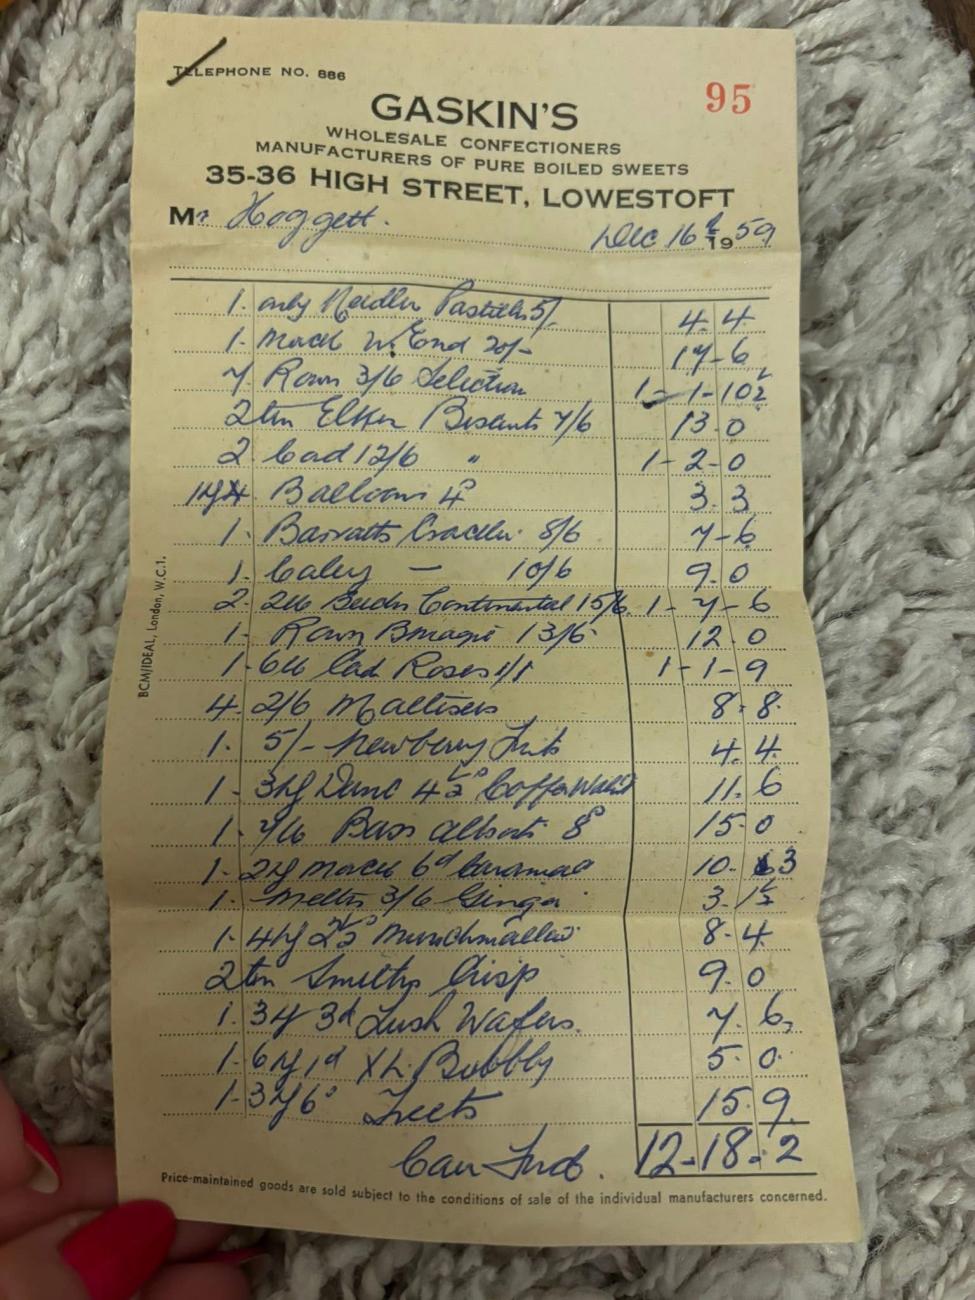 TELEPHONE NO. 886
95
GASKIN'S
WHOLESALE CONFECTIONERS
MANUFACTURERS OF PURE BOILED SWEETS
35-36 HIGH STREET, LOWESTOFT
Mr Hoggett. Dec 16th 1959
1. only Needler Pastilles 5/ 4. 4
1. Mack W. End 20/- 17-6
7 Rown 3/6 Selection 1-1-10½
2 tin Elkes Biscuits 7/6 13.0
2. Cad 12/6 " 1-2-0
Balloons 4d 3.3
1. Barratts Cracker 8/6 7-6
1. Caley — 10/6 9.0
2. 2lb Continental 15/6 1-7-6
1. Rown 13/6 12.0
1. 6lb Cad Roses 1/1 1-1-9
4. 2/6 Maltesers 8.8.
1. 5/- Newberry Fruits 4.4.
1. 3 4½d 11.6
1. 7lb Bass 8d 15.0
1. 2 Mack 6d Caramac 10.3
1. Meltis 3/6 Ginger 3.1½
1. 4 2½d Munchmallow 8-4
2 tin Smiths Crisp 9.0
1. 3 3d Lush Wafers. 7.6
1. 6 1d XL Bubbly 5.0.
1. 3 6d Treets 15.9
12-18.2
Price-maintained goods are sold subject to the conditions of sale of the individual manufacturers concerned.
BCM/IDEAL, London, W.C.1.